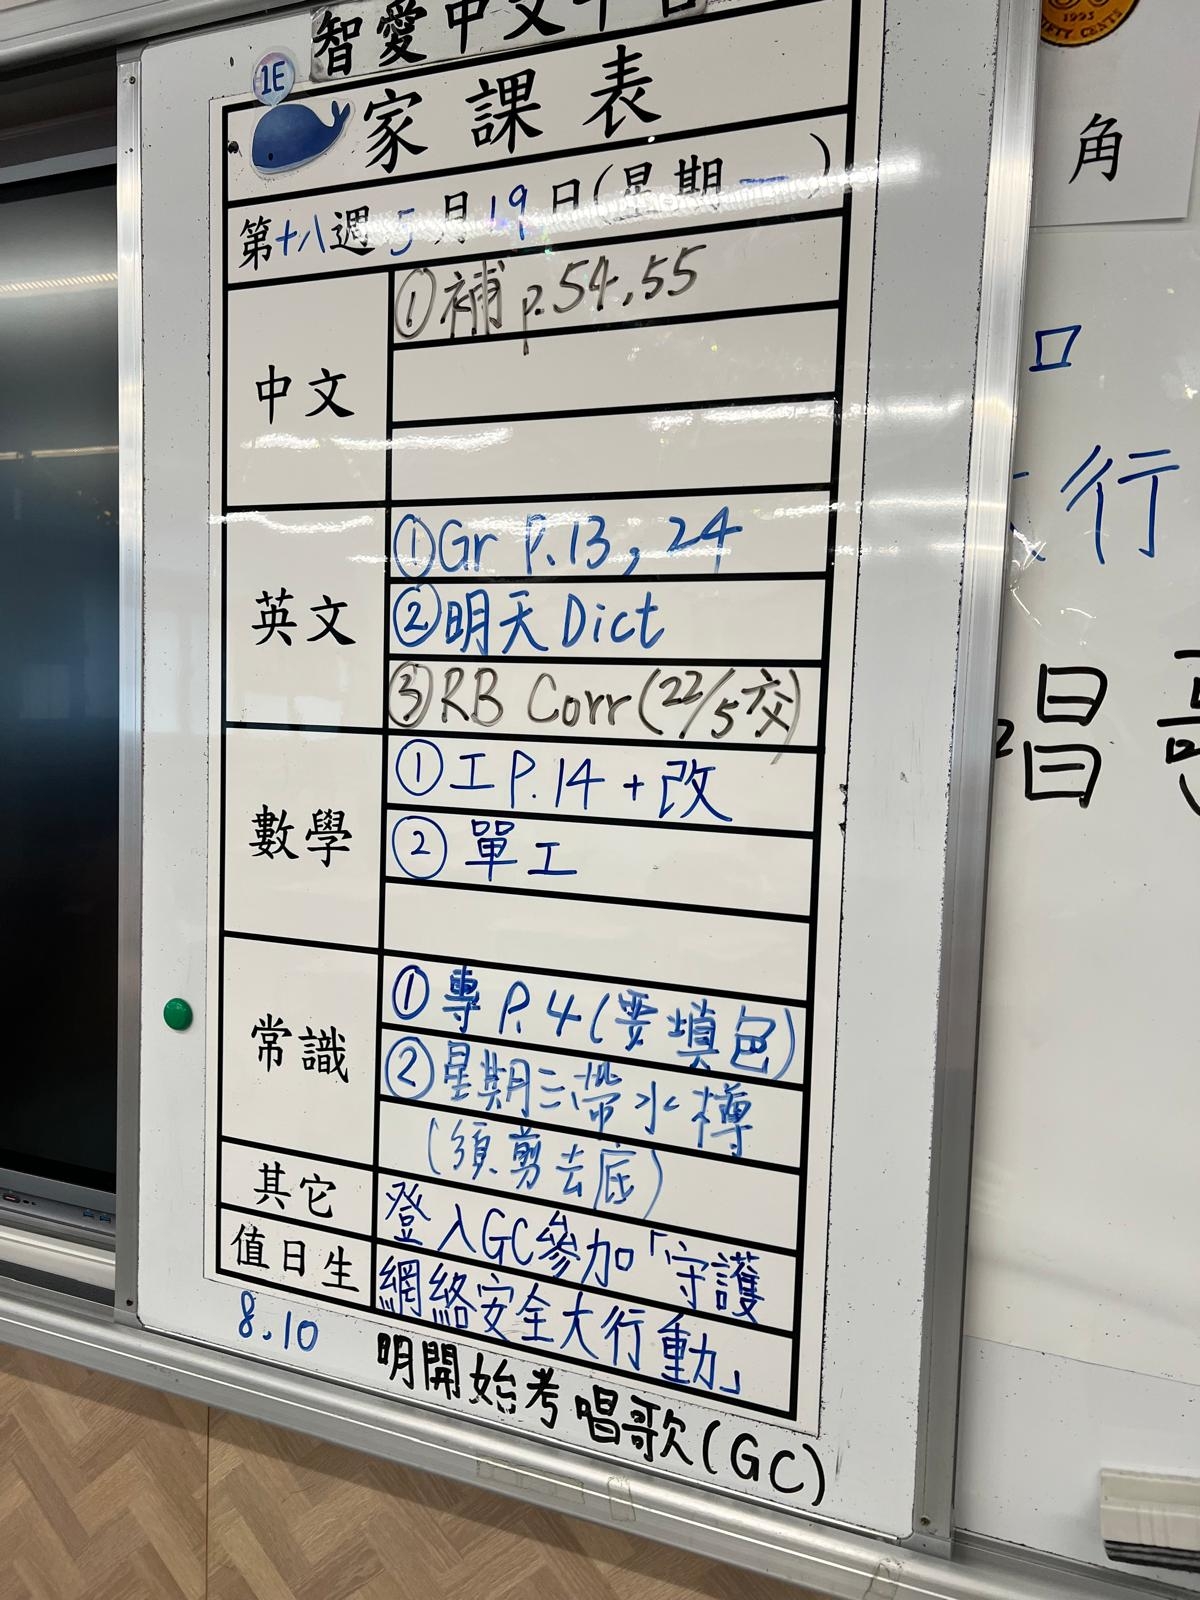 智愛中文平台
1E
家課表
第十八週5月19日(星期一)
中文
①補p.54,55
英文
①Gr P.13, 24
②明天Dict
③RB Corr(22/5交)
數學
①工P.14+改
②單工
常識
①專P.4(要填色)
②星期三帶水樽
(須剪去底)
其它
登入GC參加「守護
值日生
網絡安全大行動」
8.10
明開始考唱歌(GC)
1993
FIFTY CENTS
角
口
行
唱